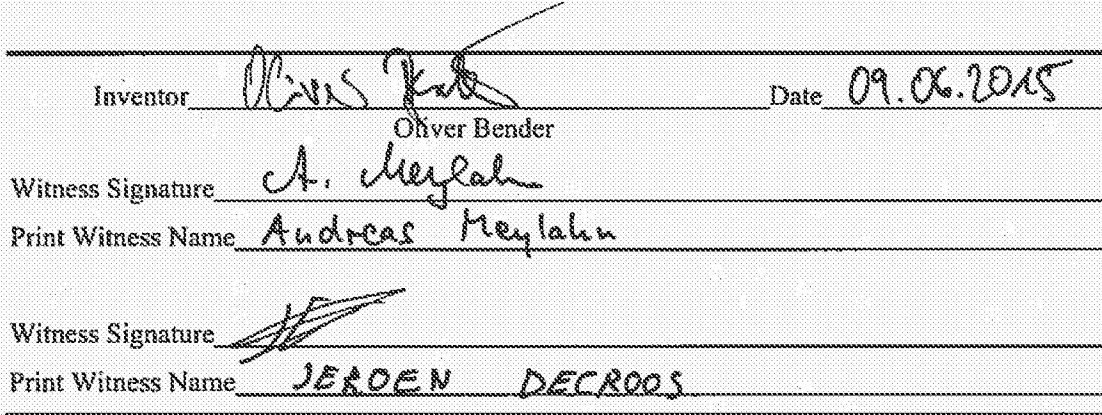 Inventor Oliver Date 09.06.2015
Oliver Bender
Witness Signature A. Meylahn
Print Witness Name Andreas Meylahn
Witness Signature
Print Witness Name JEROEN DECROOS